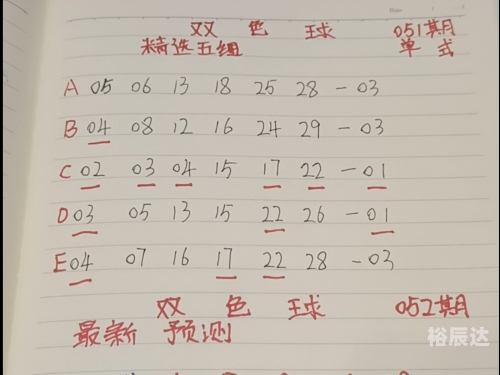 双 色 球 051期
精选五组 单 式
A 05 06 13 18 25 28 - 03
B 04 08 12 16 24 29 - 03
C 02 03 04 15 17 22 - 01
D 03 05 13 15 22 26 - 01
E 04 07 16 17 22 28 - 03
双 色 球 052期
最新 预测
裕辰达